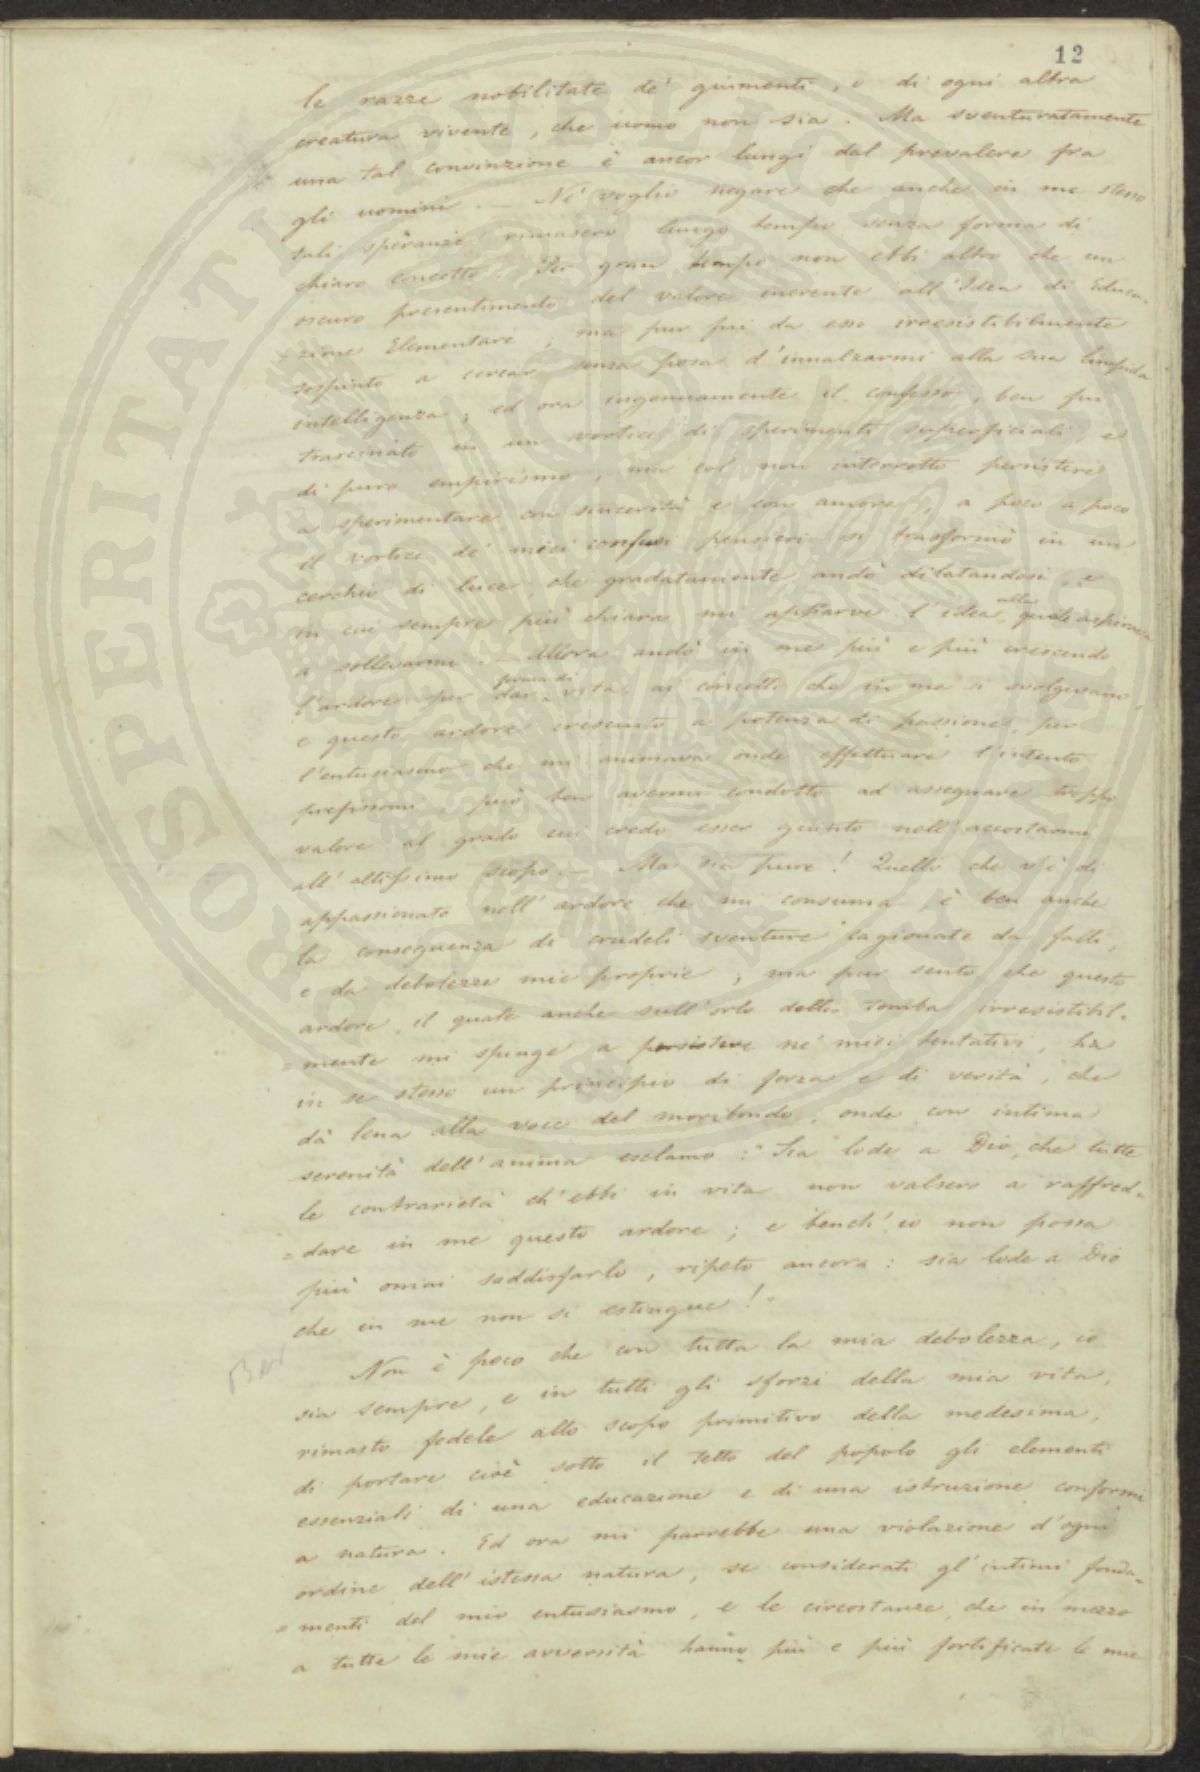 12
le razze nobilitate de' giumenti, e di ogni altra
creatura vivente, che uomo non sia. Ma sventuratamente
una tal convinzione è ancor lungi dal prevalere fra
gli uomini. — Nè voglio negare che anche in me stesso
tali speranze rimasero lungo tempo senza forma di
chiaro concetto. Per gran tempo non ebbi altro che un
oscuro presentimento del valore inerente all'Idea di Educa-
=zione Elementare, ma pur fui da essa irresistibilmente
sospinto a cercar senza posa d'innalzarmi alla sua limpida
intelligenza; ed ora ingenuamente il confesso, ben fui
trascinato in un vortice di sperimenti superficiali, e
di puro empirismo, ma col non interrotto persistere
a sperimentare con sincerità e con amore, a poco a poco
il vortice de' miei confusi pensieri si trasformò in un
cerchio di luce, che gradatamente andò dilatandosi, e
in cui sempre più chiara mi apparve l'idea, alla quale aspirava
a sollevarmi. — Allora andò in me più e più crescendo
l'ardore per dar prova di vita ai concetti che in me si svolgevano,
e questo ardore cresciuto a potenza di passione, per
l'entusiasmo che mi animava onde effettuare l'intento
prefissomi può ben avermi condotto ad assegnare troppo
valore al grado cui credo esser giunto nell'accostarmi
all'altissimo scopo. — Ma sia pure! Quello che v'è di
appassionato nell'ardore che mi consuma, è ben anche
la conseguenza di crudeli sventure cagionate da falli,
e da debolezze mie proprie; ma pur sento che questo
ardore, il quale anche sull'orlo della tomba irresistibil-
=mente mi spinge a persistere ne' miei tentativi, ha
in se stesso un principio di forza e di verità, che
dà lena alla voce del moribondo, onde con intima
serenità dell'anima esclamo: "Sia lode a Dio, che tutte
le contrarietà ch'ebbi in vita non valsero a raffred-
=dare in me questo ardore; e bench'io non possa
più omai soddisfarlo, ripeto ancora: sia lode a Dio
che in me non si estingue!"
Non è poco che con tutta la mia debolezza, io
sia sempre, e in tutti gli sforzi della mia vita,
rimasto fedele allo scopo primitivo della medesima,
di portare cioè sotto il tetto del popolo gli elementi
essenziali di una educazione e di una istruzione conforme
a natura. Ed ora mi parrebbe una violazione d'ogni
ordine dell'istessa natura, se considerati gl'intimi fonda-
=menti del mio entusiasmo, e le circostanze che in mezzo
a tutte le mie avversità hanno più e più fortificate le mie
PROSPERITATI PUBLICAE